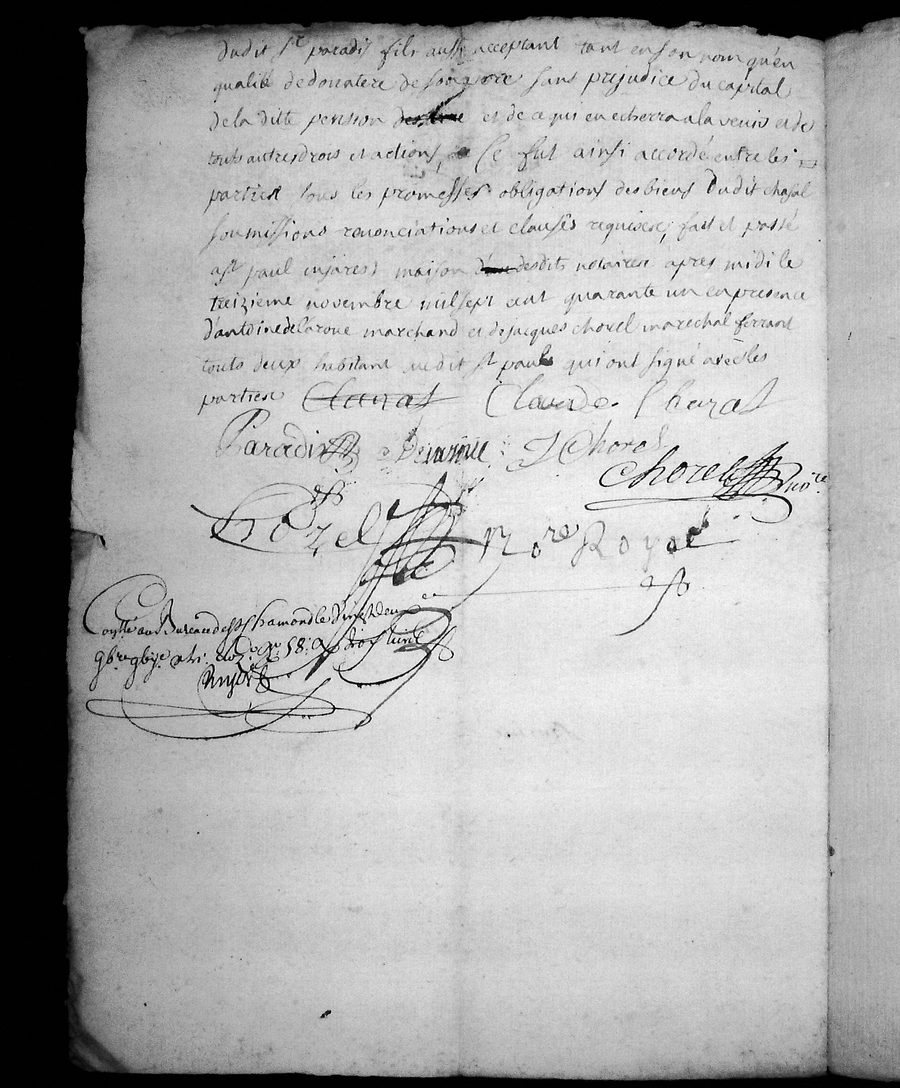 dudit sr paradis fils aussi acceptant tant en son nom qu'en
qualité de donatere de son pere sans prejudice du capital
de la ditte pension et de ce qui en echerra a la venir et de
touts autres drois et actions, Ce fut ainsi accordé entre les
parties sous les promesses obligations des biens dudit chasal
soumissions renonciations et clauses requises; fait et passé
a st paul en jarest maison desdits notaires apres midi le
treizieme novembre mil sept cent quarante un en presence
d'antoine delaroue marchand et de jacques chorel marechal ferrant
touts deux habitant audit st paul qui ont signé avec les
parties Claude
Paradis Delaroue J Chorel
Chorel no.re
No.re Royal
au Bureau de st Chamond le
9bre